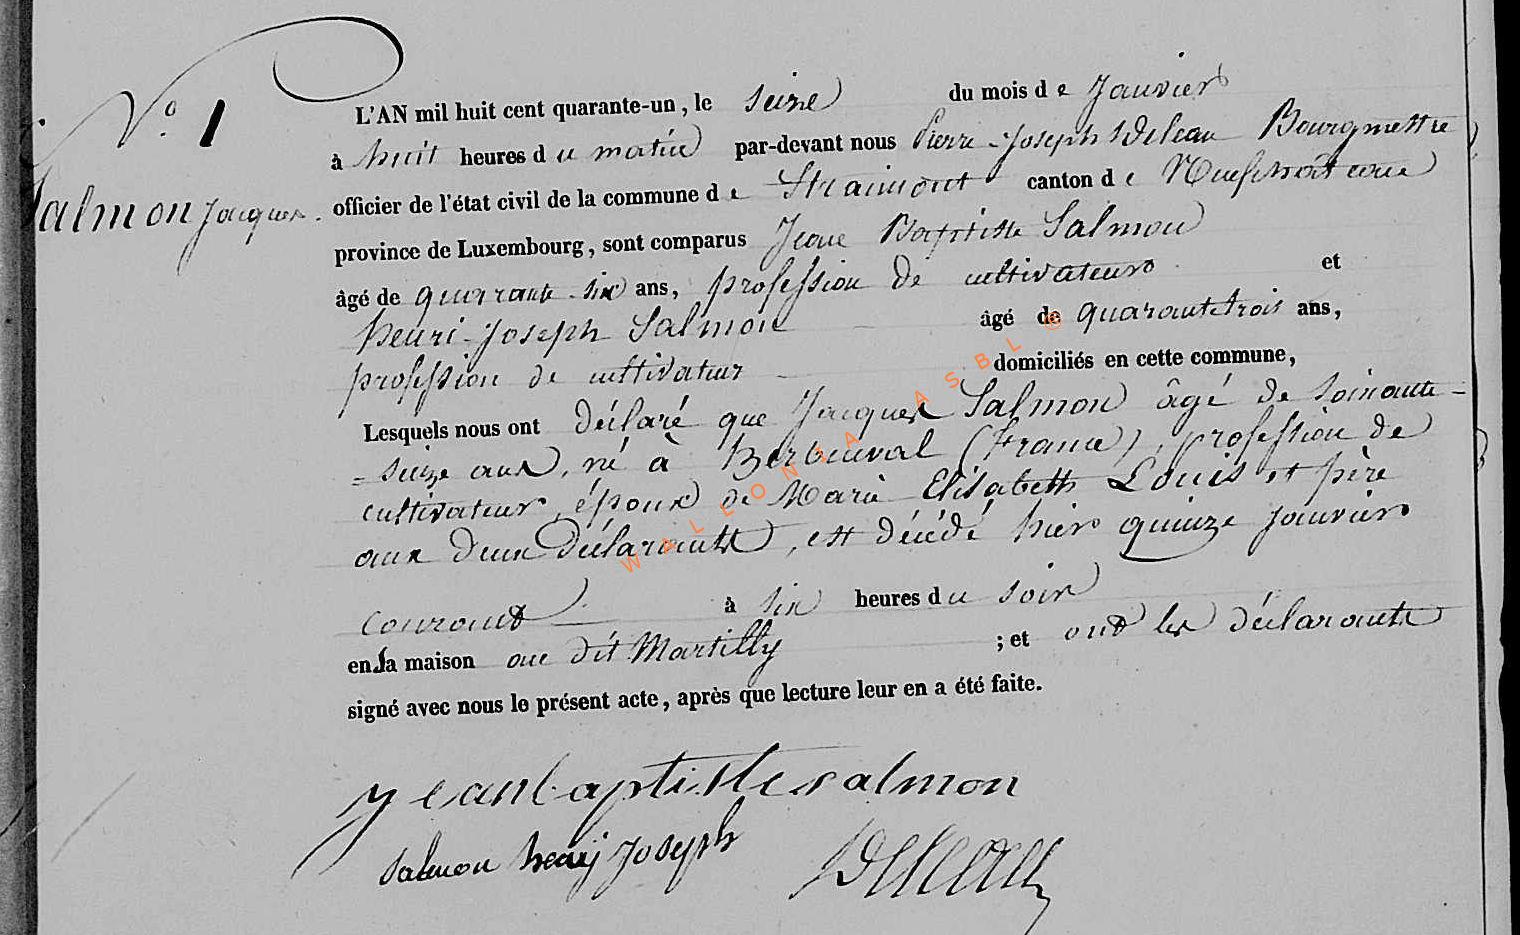 N° 1
Salmon Jacques.
L'AN mil huit cent quarante-un, le seize du mois de Janvier
à huit heures du matin par-devant nous Pierre-Joseph Deleau Bourgmestre
officier de l'état civil de la commune de Straimont canton de Neufchâteau
province de Luxembourg, sont comparus Jean Baptiste Salmon
âgé de quarante-six ans, profession de cultivateur et
henri-Joseph Salmon âgé de quarante trois ans,
profession de cultivateur domiciliés en cette commune,
Lesquels nous ont déclaré que Jacques Salmon âgé de soixante=
=seize ans, né à (France), profession de
cultivateur, époux de Marie Elisabeth Louis et père
aux deux déclarants, est décédé hier quinze janvier
courant à six heures du soir
en sa maison au dit Martilly ; et ont les déclarants
signé avec nous le présent acte, après que lecture leur en a été faite.
jeanbaptiste salmon
salmon henrj Joseph
WALLONIA ASBL ©